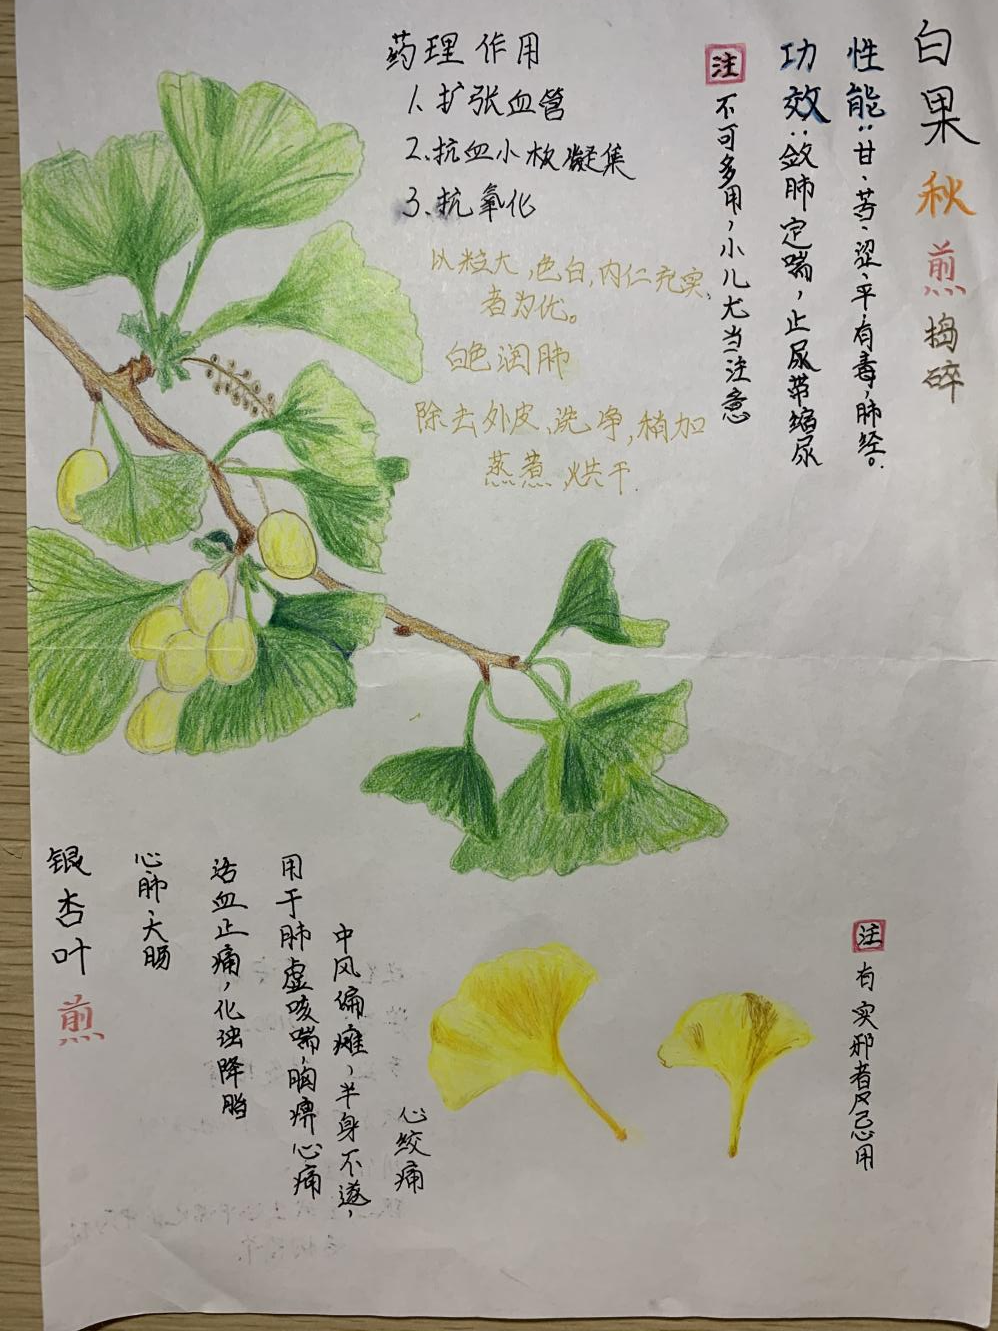 白果 秋 煎 捣碎
性能：甘、苦、涩、平，有毒，肺经。
功效：敛肺定喘，止尿带缩尿
注 不可多用，小儿尤当注意
药理作用
1、扩张血管
2、抗血小板凝集
3、抗氧化
以粒大，色白，内仁充实，
者为优。
白色润肺
除去外皮、洗净，稍加
蒸煮 烘干
银杏叶 煎
心肺、大肠
活血止痛，化浊降脂
用于肺虚咳喘，胸痹心痛
中风偏瘫，半身不遂，
心绞痛
注 有实邪者忌用